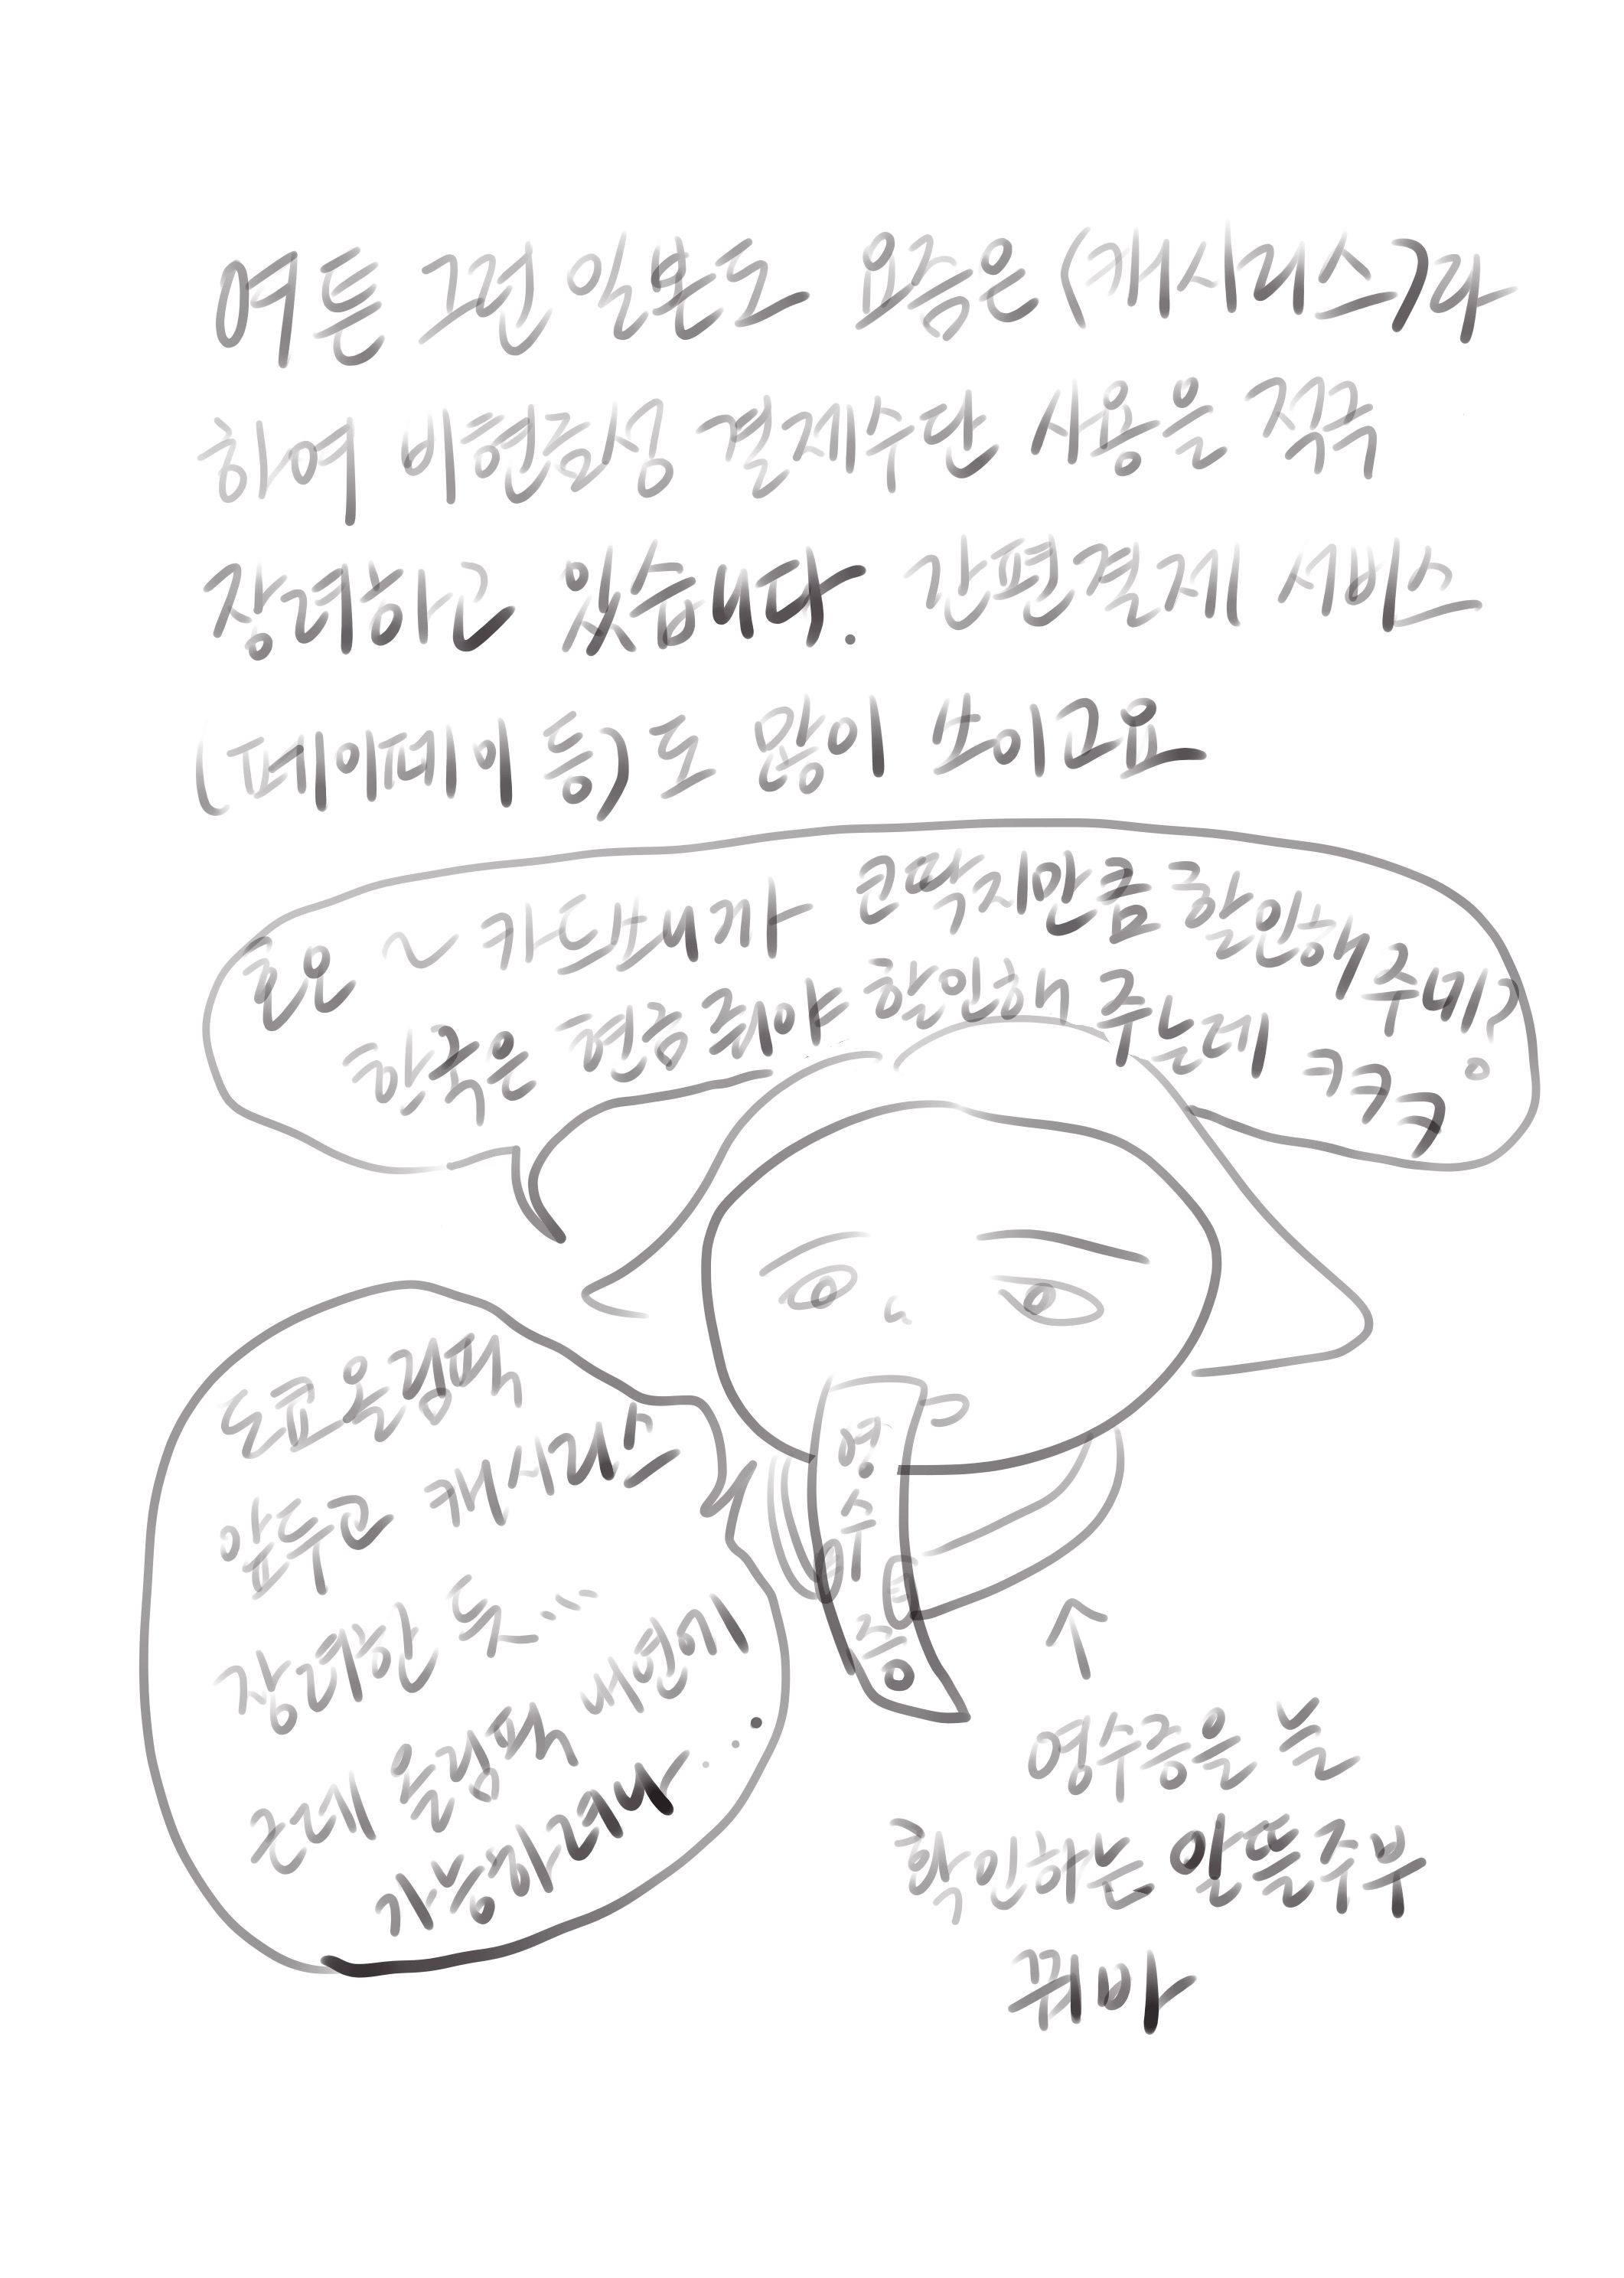 여튼 그런 일본도 요즘은 (캐시리스)라
하여 비현금성 결제수단 사용을 적극
장려하고 있습니다. 간편결제 서비스
(페이페이 등)도 많이 쓰이고요
웬일 ~ 카드사니까 코딱지만큼 할인해 주네?
한국은 현금 줘야 할인해 주는데 ㅋㅋㅋ
도쿄올림픽
앞두고 캐시리스
장려한 듯...
근데 올림픽 씨발이
가능하려나...
영수증
영수증을 늘
확인하는 알뜰주부
쿼바